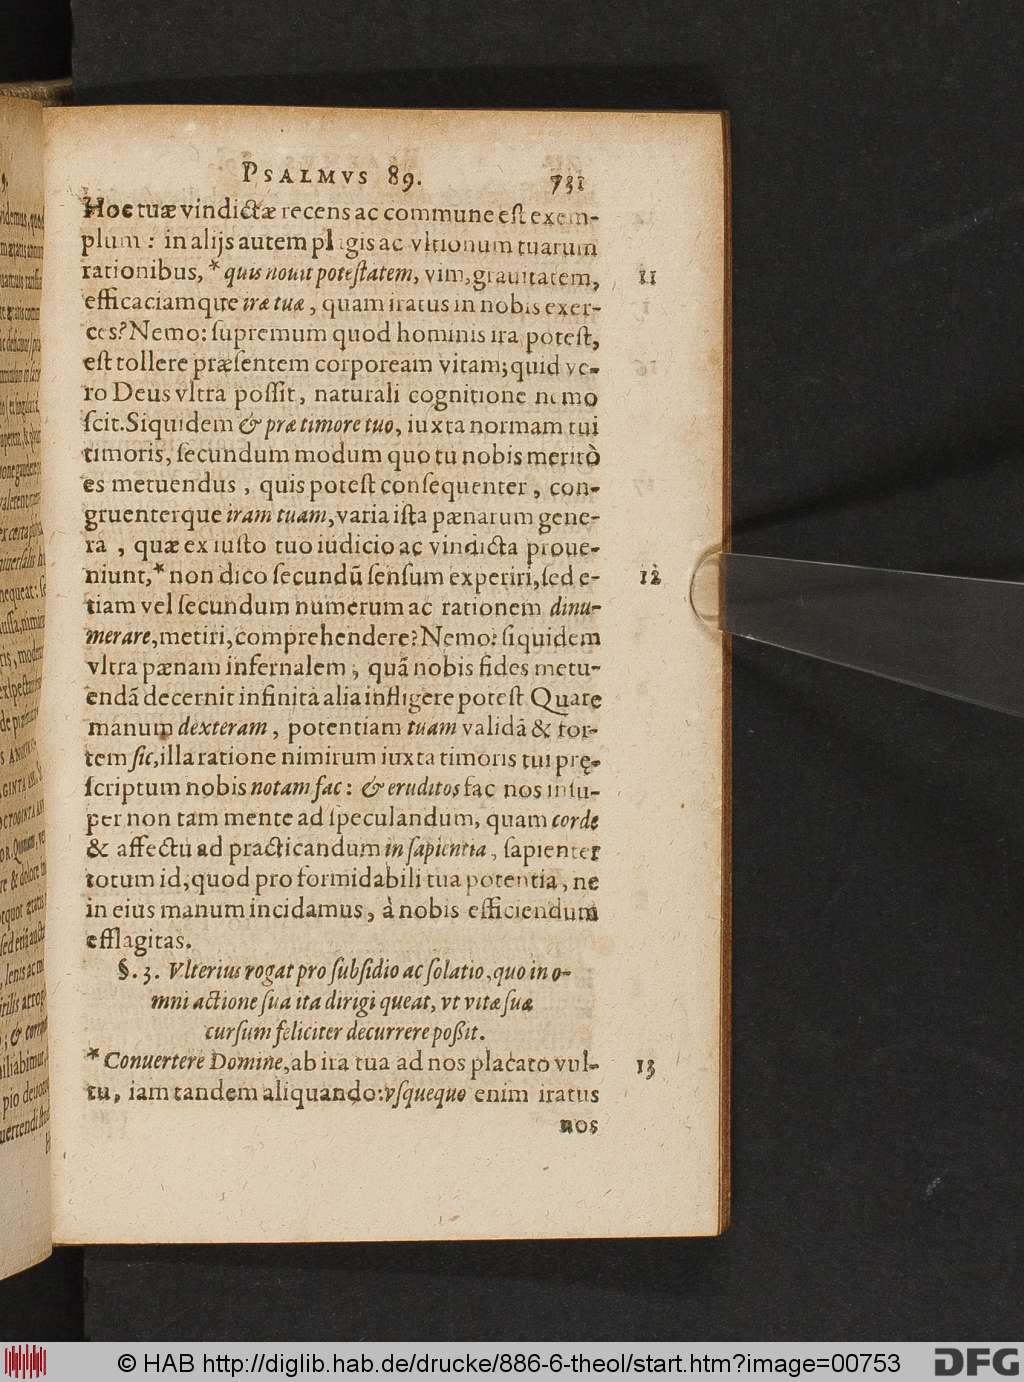 PSALMVS 89. 731
Hoc tuæ vindictæ recens ac commune est exem-
plum: in alijs autem plagis ac vltionum tuarum
rationibus, * quis nouit potestatem, vim, grauitatem, 11
efficaciamque iræ tuæ, quam iratus in nobis exer-
ces? Nemo: supremum quod hominis ira potest,
est tollere præsentem corpoream vitam; quid ve-
ro Deus vltra possit, naturali cognitione nemo
scit. Siquidem & præ timore tuo, iuxta normam tui
timoris, secundum modum quo tu nobis meritò
es metuendus, quis potest consequenter, con-
gruenterque iram tuam, varia ista pænarum gene-
ra, quæ ex iusto tuo iudicio ac vindicta proue-
niunt, * non dico secundũ sensum experiri, sed e- 12
tiam vel secundum numerum ac rationem dinu-
merare, metiri, comprehendere? Nemo: siquidem
vltra pænam infernalem, quã nobis fides metu-
endã decernit infinita alia infligere potest Quare
manum dexteram, potentiam tuam validã & for-
tem sic, illa ratione nimirum iuxta timoris tui prę-
scriptum nobis notam fac: & eruditos fac nos insu-
per non tam mente ad speculandum, quam corde
& affectu ad practicandum in sapientia, sapienter
totum id, quod pro formidabili tua potentia, ne
in eius manum incidamus, à nobis efficiendum
efflagitas.
§. 3. Vlterius rogat pro subsidio ac solatio, quo in o-
mni actione sua ita dirigi queat, vt vitæ suæ
cursum feliciter decurrere poßit.
* Conuertere Domine, ab ira tua ad nos placato vul- 13
tu, iam tandem aliquando: vsquequo enim iratus
nos
© HAB http://diglib.hab.de/drucke/886-6-theol/start.htm?image=00753
DFG